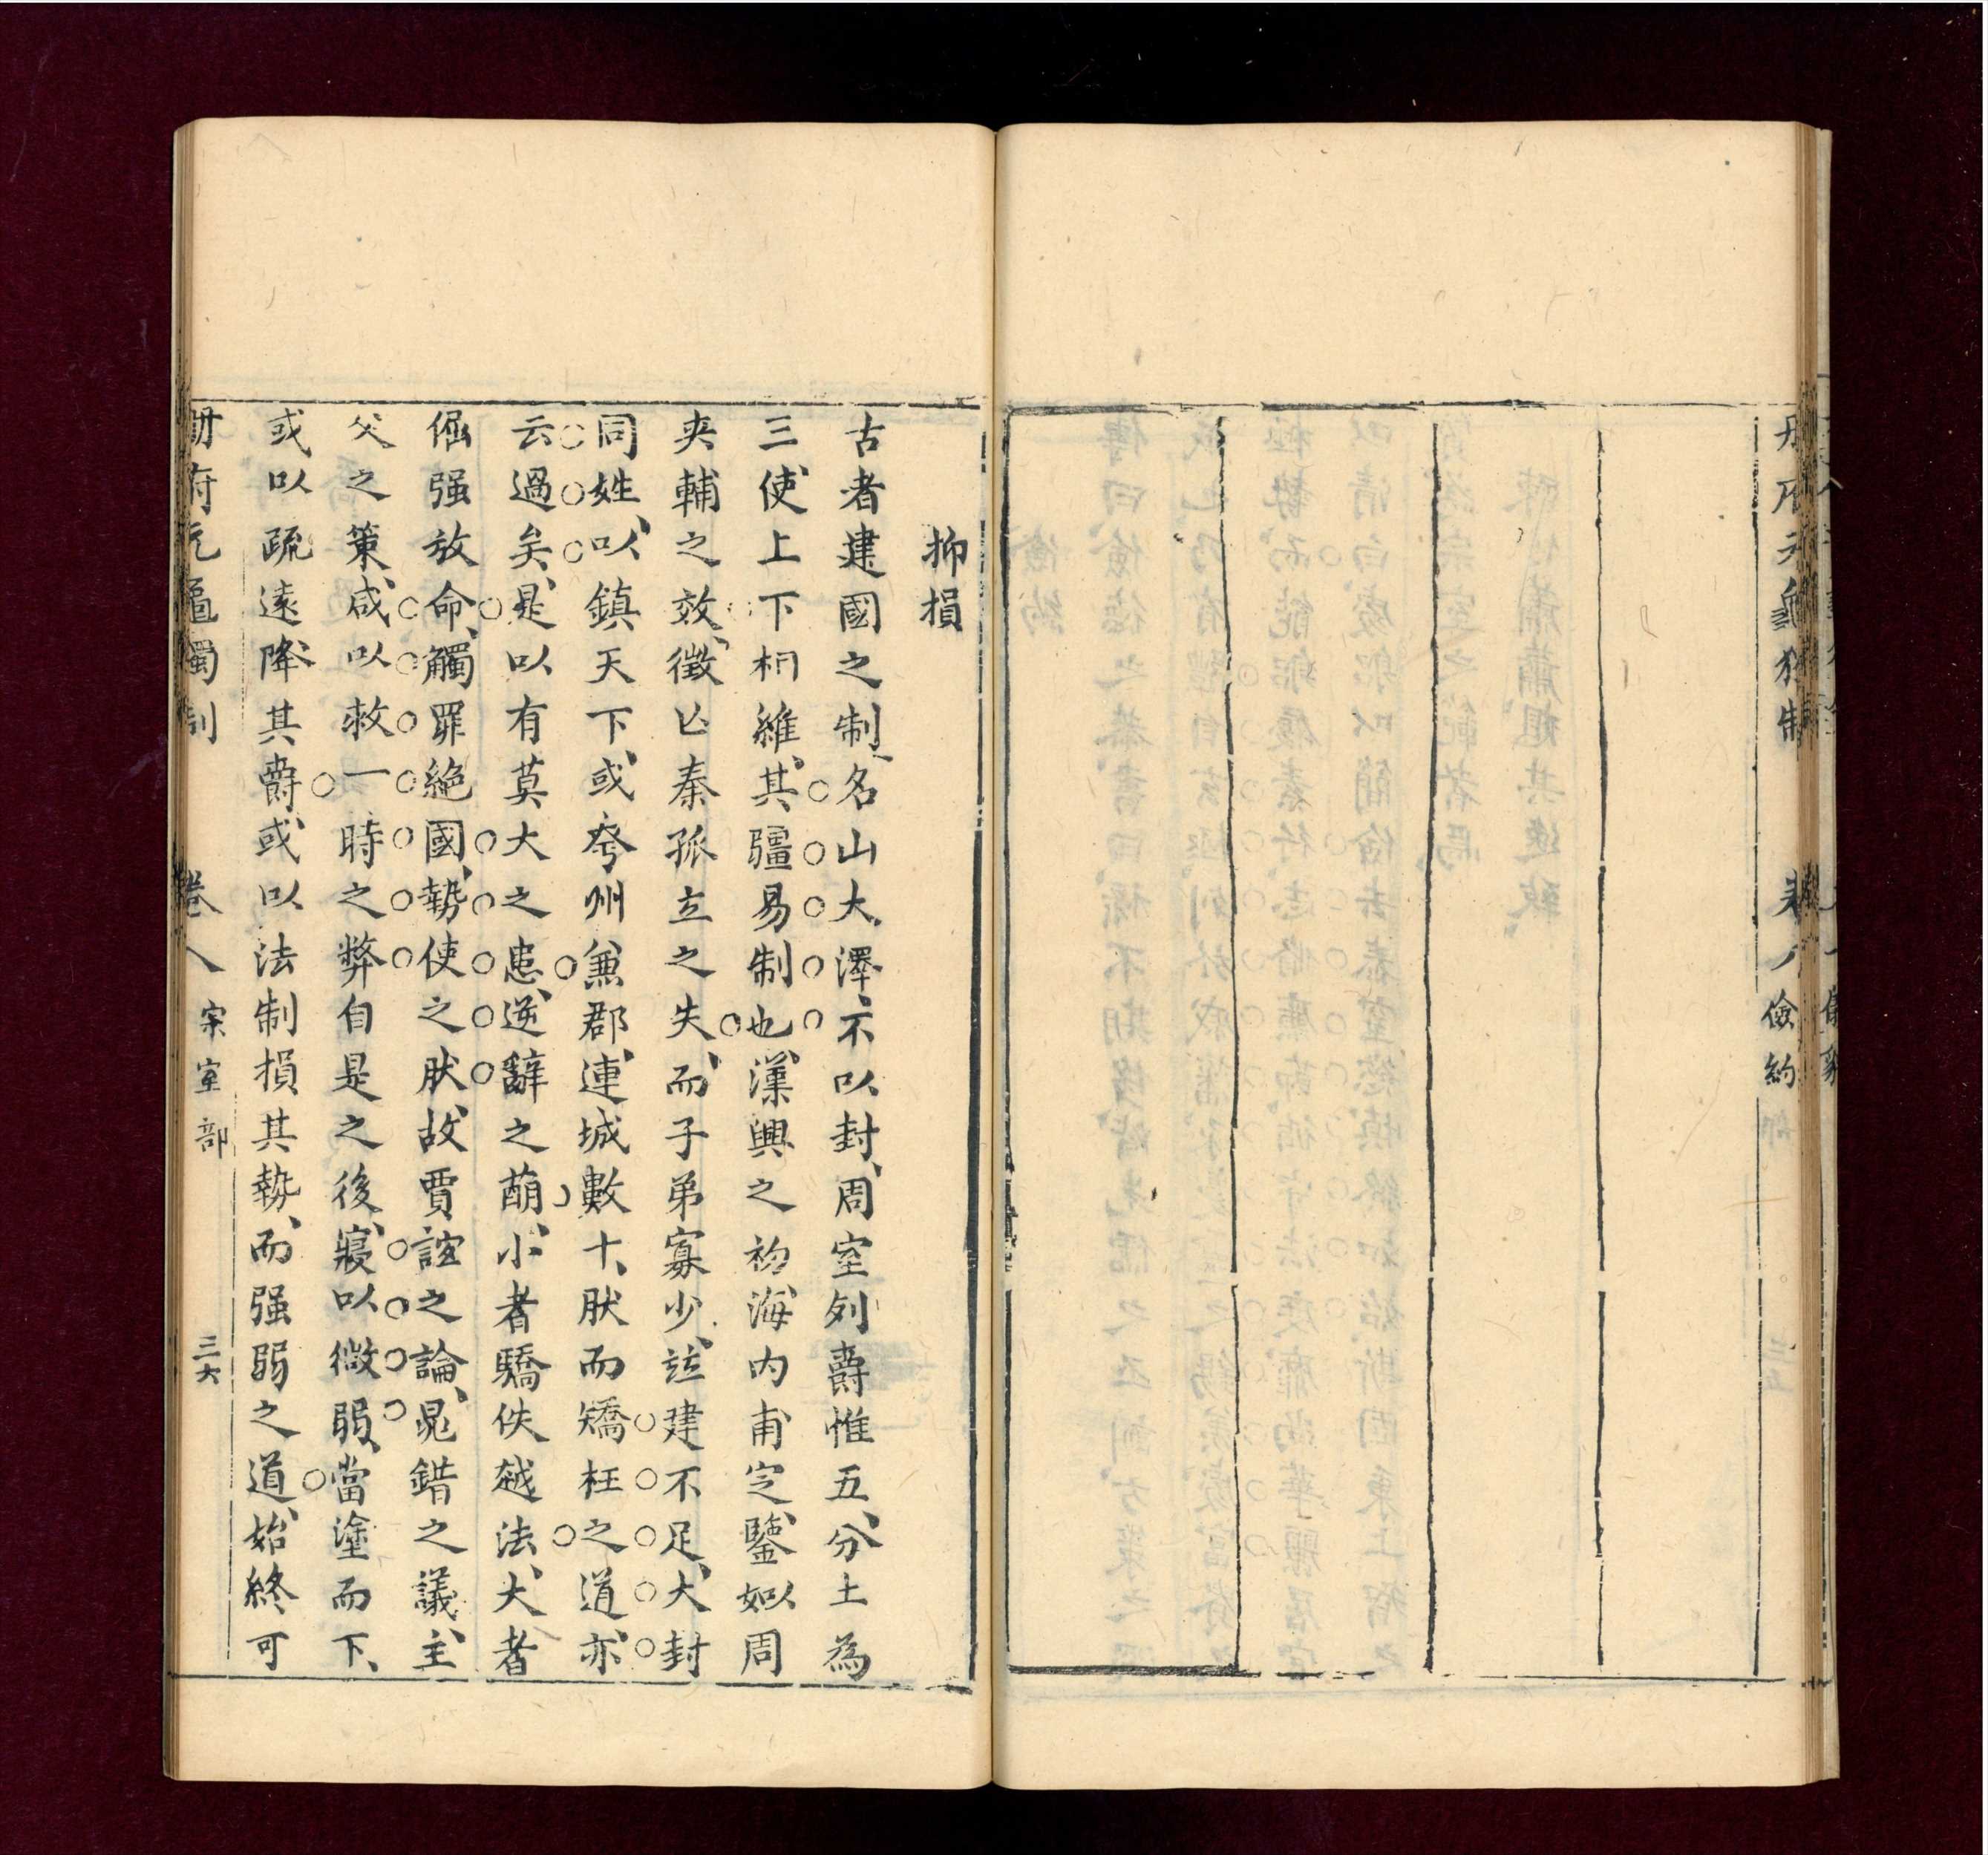 冊府元龜獨制
卷八
儉約
抑損
古者建國之制名山大澤不以封周室列爵惟五分土為
三使上下相維其疆易制也漢興之初海內甫定鑒如周
夾輔之效徵亾秦孤立之失而子弟寡少並建不足大封
同姓以鎮天下或夸州兼郡連城數十肰而矯枉之道亦
云過矣是以有莫大之患逆辭之萠小者驕佚越法大者
倔强放命觸罪絕國勢使之肰故賈誼之論晁錯之議主
父之策咸以救一時之弊自是之後寢以微弱當塗而下
或以疏遠降其爵或以法制損其勢而强弱之道始終可
冊府元龜獨制
卷八
宗室部
三六